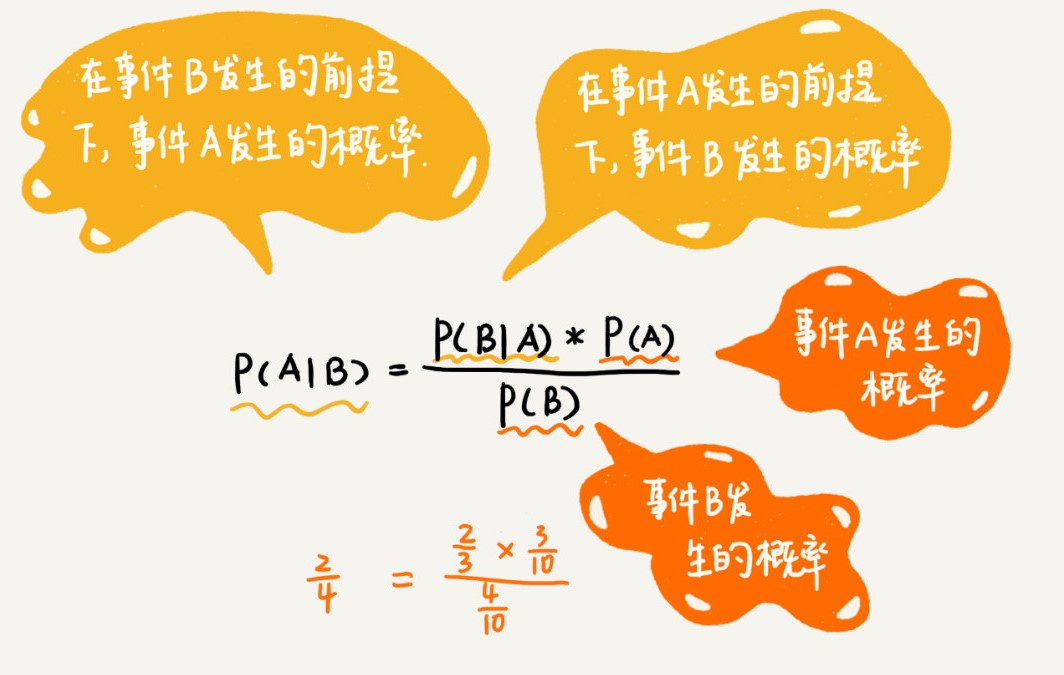 在事件B发生的前提
下,事件A发生的概率.
在事件A发生的前提
下,事件B发生的概率
P(A|B) = P(B|A) * P(A)
P(B)
事件A发生的
概率
事件B发
生的概率
2/4 = 2/3 × 3/10
4/10